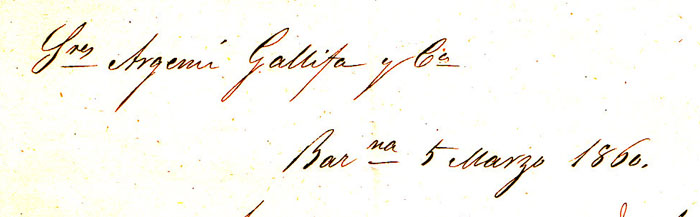 Sres Argemí Gallifa y Cia
Barna 5 Marzo 1860.